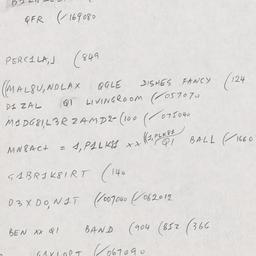 QFR (✓169080
PERC1LA,J (849
((MAL8U,NDLAX QGLE DISHES FANCY (124
D1ZAL Q1 LIVINGROOM (✓057070
M1DG81,L3RZAMD2-(100 (✓075040
MN8AC+ = 1,P1LK81 xx Q1 BALL (✓1660
G1BR1K81RT (140
D3XDO,N1T (✓007040 (✓062012
BEN xx Q1 BAND (904 (812 (366